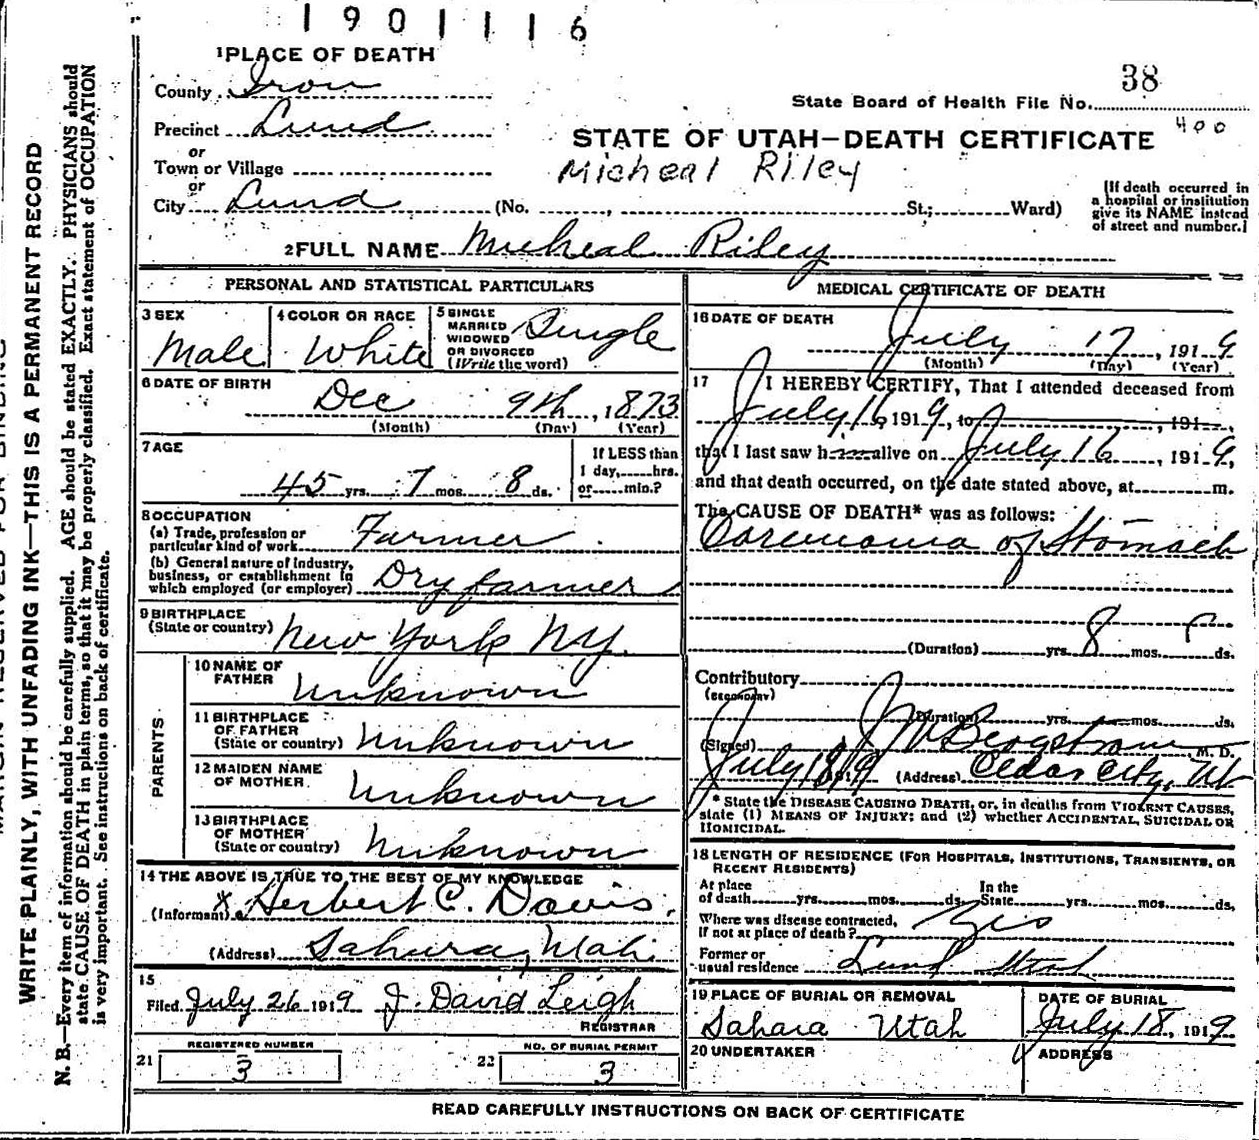 1901116
1 PLACE OF DEATH
County Iron
38
State Board of Health File No.
Precinct Lund
400
STATE OF UTAH—DEATH CERTIFICATE
or
Town or Village
Micheal Riley
or
City Lund (No. , St.; Ward)
[If death occurred in
a hospital or institution
give its NAME instead
of street and number.]
2 FULL NAME Micheal Riley
PERSONAL AND STATISTICAL PARTICULARS
3 SEX
Male
4 COLOR OR RACE
White
5 SINGLE
MARRIED
WIDOWED
OR DIVORCED
(Write the word)
Single
6 DATE OF BIRTH
Dec 9th, 1873
(Month) (Day) (Year)
7 AGE
45 yrs. 7 mos. 8 ds.
If LESS than
1 day, hrs.
or min.?
8 OCCUPATION
(a) Trade, profession or
particular kind of work Farmer
(b) General nature of industry,
business, or establishment in
which employed (or employer) Dry farmer
9 BIRTHPLACE
(State or country) New York NY.
PARENTS
10 NAME OF
FATHER Unknown
11 BIRTHPLACE
OF FATHER
(State or country) Unknown
12 MAIDEN NAME
OF MOTHER Unknown
13 BIRTHPLACE
OF MOTHER
(State or country) Unknown
14 THE ABOVE IS TRUE TO THE BEST OF MY KNOWLEDGE
(Informant) Herbert C. Davis.
(Address) Sahara, Utah.
15
Filed July 26 1919 J. David Leigh
REGISTRAR
21 REGISTERED NUMBER
3
22 NO. OF BURIAL PERMIT
3
MEDICAL CERTIFICATE OF DEATH
16 DATE OF DEATH
July 17, 1919
(Month) (Day) (Year)
17 I HEREBY CERTIFY, That I attended deceased from
July 16 1919, to , 191 ,
that I last saw h alive on July 16, 1919,
and that death occurred, on the date stated above, at m.
The CAUSE OF DEATH* was as follows:
Carcinoma of Stomach
(Duration) yrs. 8 mos. ds.
Contributory
(SECONDARY)
(Duration) yrs. mos. ds.
(Signed) J W Bergstrom M. D.
July 18 1919 (Address) Cedar City, Ut
* State the DISEASE CAUSING DEATH, or, in deaths from VIOLENT CAUSES,
state (1) MEANS OF INJURY; and (2) whether ACCIDENTAL, SUICIDAL OR
HOMICIDAL.
18 LENGTH OF RESIDENCE (FOR HOSPITALS, INSTITUTIONS, TRANSIENTS, OR
RECENT RESIDENTS)
At place
of death yrs. mos. ds.
In the
State yrs. mos. ds.
Where was disease contracted,
if not at place of death?
Former or
usual residence Lund Utah
19 PLACE OF BURIAL OR REMOVAL
Sahara Utah
DATE OF BURIAL
July 18, 1919
20 UNDERTAKER
ADDRESS
READ CAREFULLY INSTRUCTIONS ON BACK OF CERTIFICATE
WRITE PLAINLY, WITH UNFADING INK—THIS IS A PERMANENT RECORD
N. B.—Every item of information should be carefully supplied. AGE should be stated EXACTLY. PHYSICIANS should
state CAUSE OF DEATH in plain terms, so that it may be properly classified. Exact statement of OCCUPATION
is very important. See instructions on back of certificate.